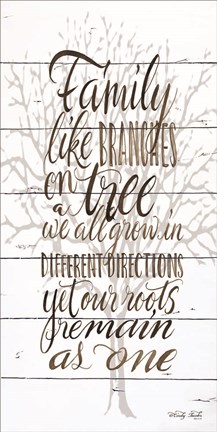 Family
like BRANCHES
on a tree
we all grow in
DIFFERENT DIRECTIONS
yet our roots
remain
as one